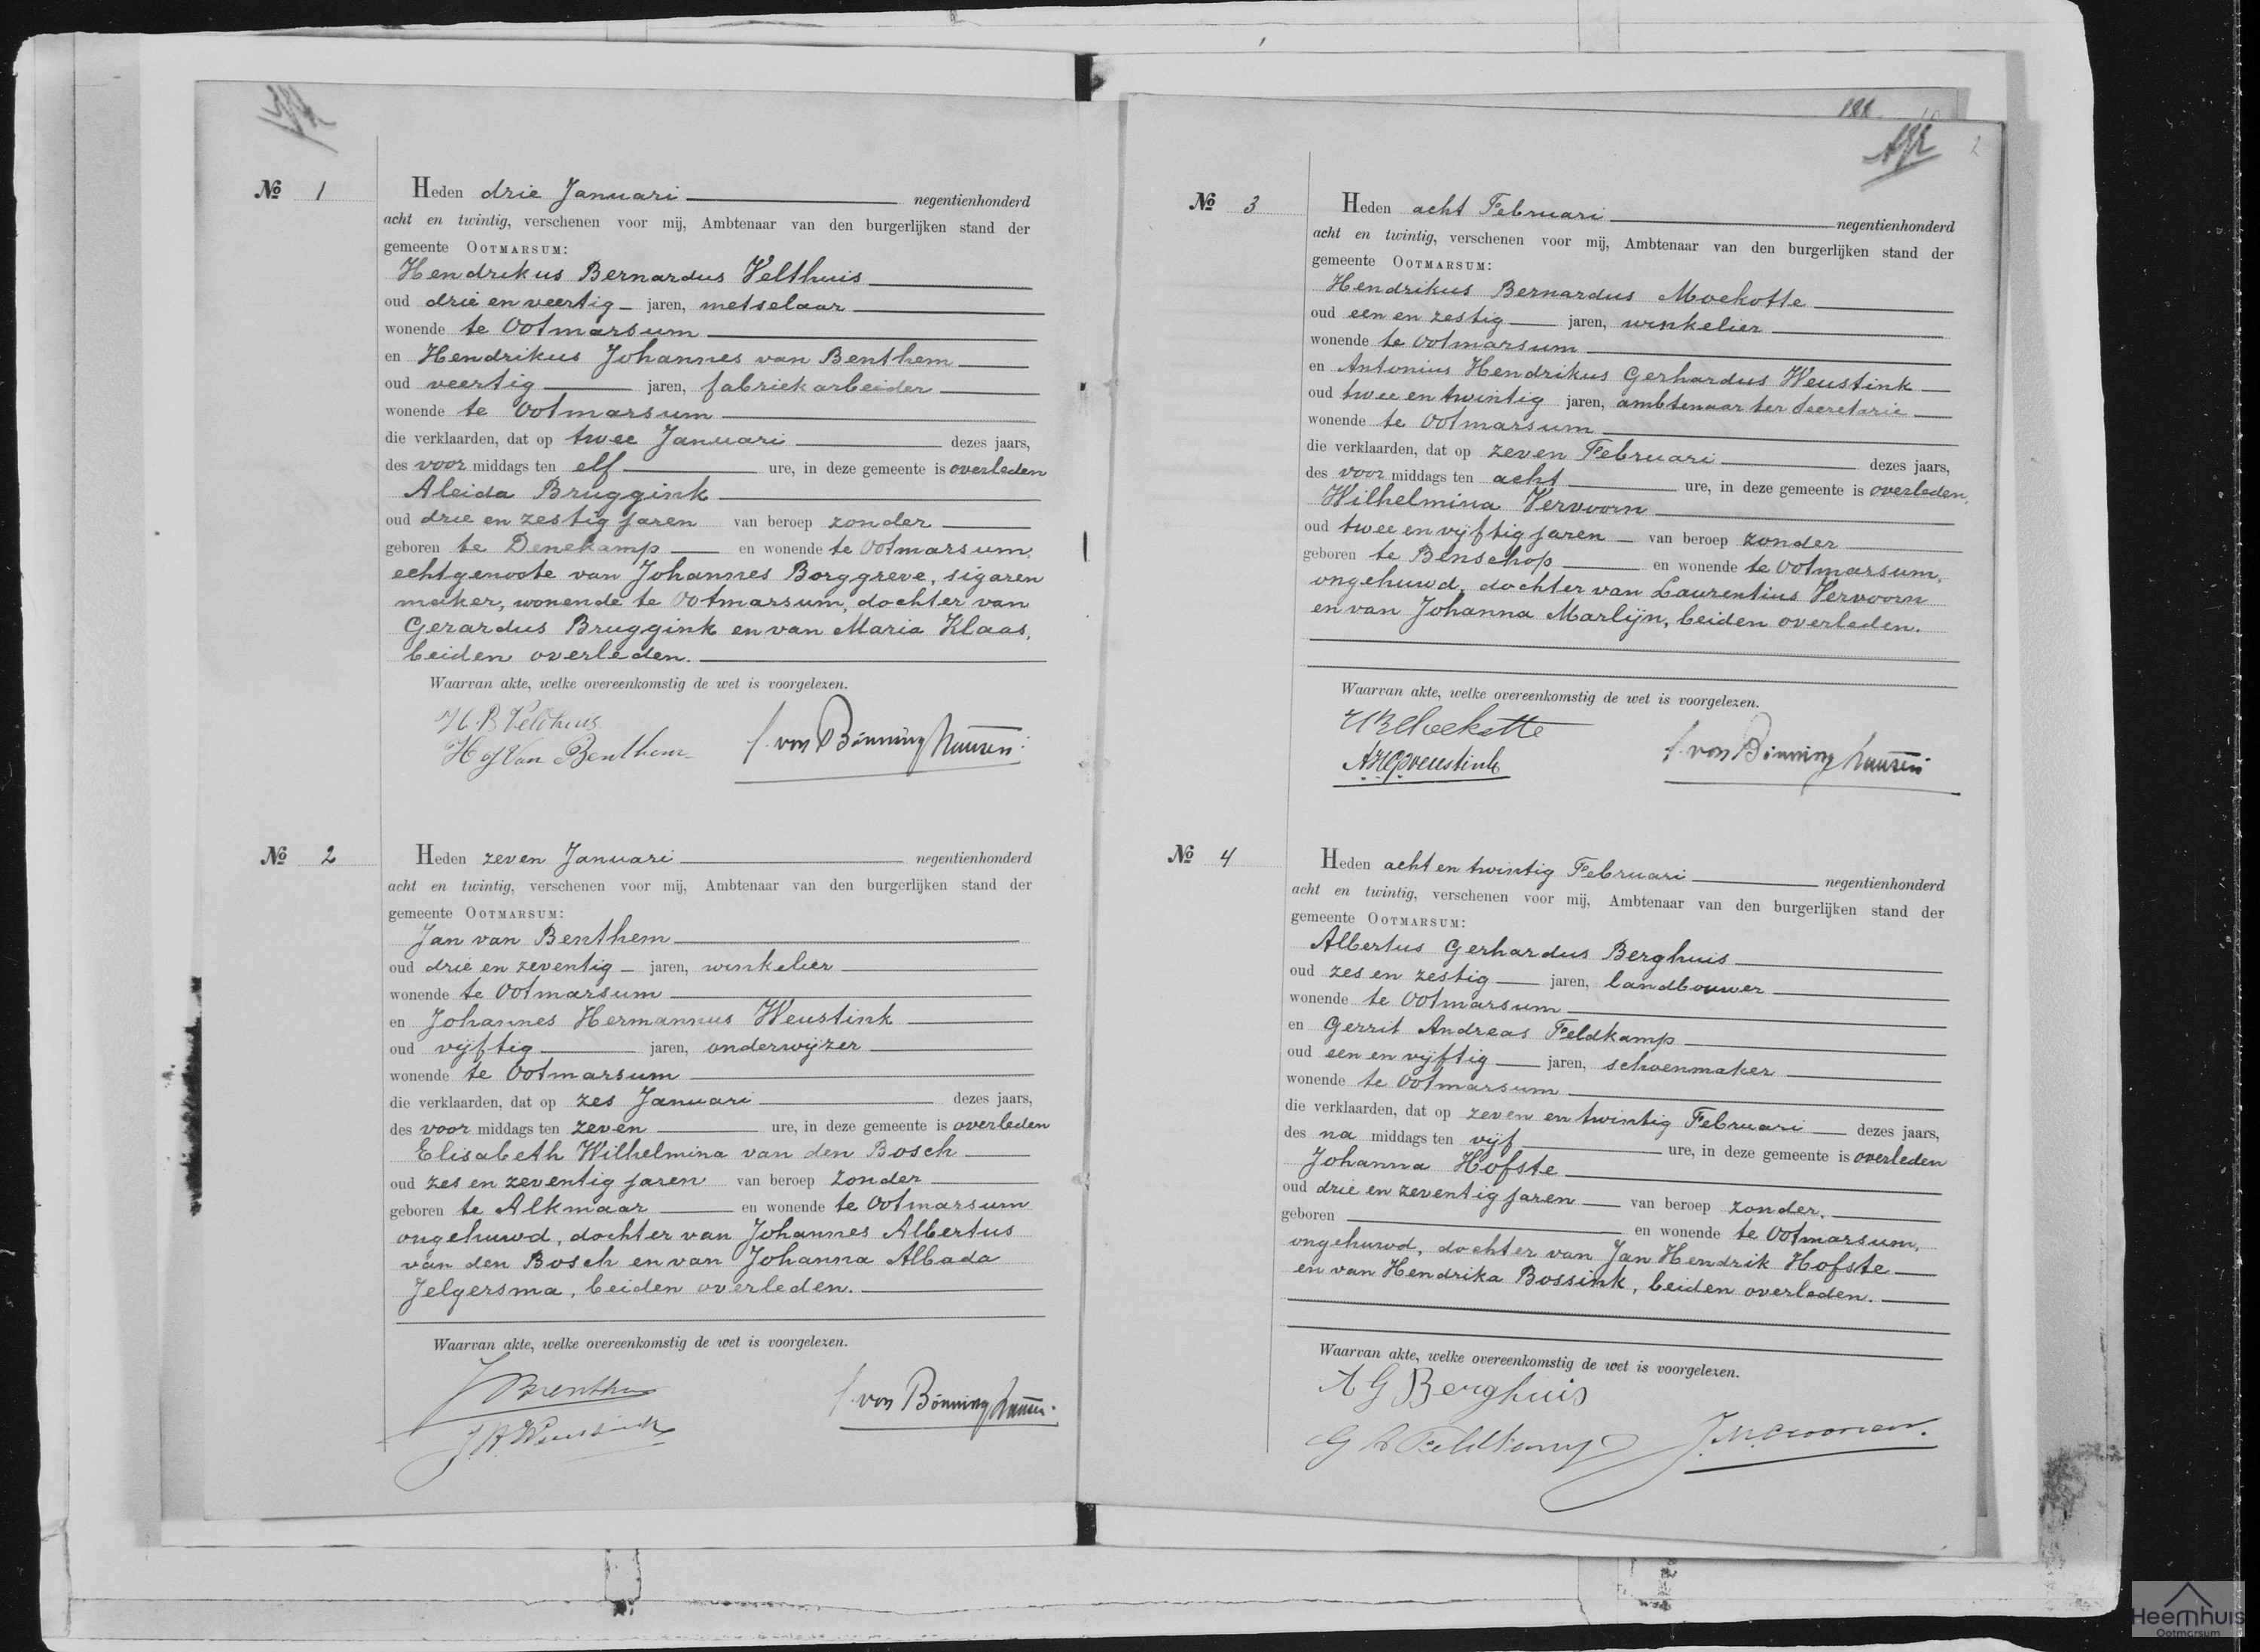 № 1
Heden drie Januari negentienhonderd
acht en twintig, verschenen voor mij, Ambtenaar van den burgerlijken stand der
gemeente OOTMARSUM:
Hendrikus Bernardus Velthuis
oud drie en veertig jaren, metselaar
wonende te Ootmarsum
en Hendrikus Johannes van Benthem
oud veertig jaren, fabriekarbeider
wonende te Ootmarsum
die verklaarden, dat op twee Januari dezes jaars,
des voor middags ten elf ure, in deze gemeente is overleden
Aleida Bruggink
oud drie en zestig jaren van beroep zonder
geboren te Denekamp en wonende te Ootmarsum,
echtgenoote van Johannes Borggreve, sigaren
maker, wonende te Ootmarsum, dochter van
Gerardus Bruggink en van Maria Klaas,
beiden overleden.
Waarvan akte, welke overeenkomstig de wet is voorgelezen.
H. B Velthuis
H J Van Benthem
von Bönninghausen
№ 2
Heden zeven Januari negentienhonderd
acht en twintig, verschenen voor mij, Ambtenaar van den burgerlijken stand der
gemeente OOTMARSUM:
Jan van Benthem
oud drie en zeventig jaren, winkelier
wonende te Ootmarsum
en Johannes Hermannus Weustink
oud vijftig jaren, onderwijzer
wonende te Ootmarsum
die verklaarden, dat op zes Januari dezes jaars,
des voor middags ten zeven ure, in deze gemeente is overleden
Elisabeth Wilhelmina van den Bosch
oud zes en zeventig jaren van beroep zonder
geboren te Alkmaar en wonende te Ootmarsum
ongehuwd, dochter van Johannes Albertus
van den Bosch en van Johanna Albada
Jelgersma, beiden overleden.
Waarvan akte, welke overeenkomstig de wet is voorgelezen.
J. H. Weustink
von Bönninghausen
188
2
№ 3
Heden acht Februari negentienhonderd
acht en twintig, verschenen voor mij, Ambtenaar van den burgerlijken stand der
gemeente OOTMARSUM:
Hendrikus Bernardus Moekotte
oud een en zestig jaren, winkelier
wonende te Ootmarsum
en Antonius Hendrikus Gerhardus Weustink
oud twee en twintig jaren, ambtenaar ter Secretarie
wonende te Ootmarsum
die verklaarden, dat op zeven Februari dezes jaars,
des voor middags ten acht ure, in deze gemeente is overleden,
Wilhelmina Vervoorn
oud twee en vijftig jaren van beroep zonder
geboren te Benschop en wonende te Ootmarsum,
ongehuwd, dochter van Laurentius Vervoorn
en van Johanna Marlijn, beiden overleden.
Waarvan akte, welke overeenkomstig de wet is voorgelezen.
HBMoekotte
AHGWeustink
von Bönninghausen
№ 4
Heden acht en twintig Februari negentienhonderd
acht en twintig, verschenen voor mij, Ambtenaar van den burgerlijken stand der
gemeente OOTMARSUM:
Albertus Gerhardus Berghuis
oud zes en zestig jaren, landbouwer
wonende te Ootmarsum
en Gerrit Andreas Feldkamp
oud een en vijftig jaren, schoenmaker
wonende te Ootmarsum
die verklaarden, dat op zeven en twintig Februari dezes jaars,
des na middags ten vijf ure, in deze gemeente is overleden
Johanna Hofste
oud drie en zeventig jaren van beroep zonder,
geboren en wonende te Ootmarsum,
ongehuwd, dochter van Jan Hendrik Hofste
en van Hendrika Bossink, beiden overleden.
Waarvan akte, welke overeenkomstig de wet is voorgelezen.
A G Berghuis
G A Feldkamp
Heemhuis
Ootmarsum